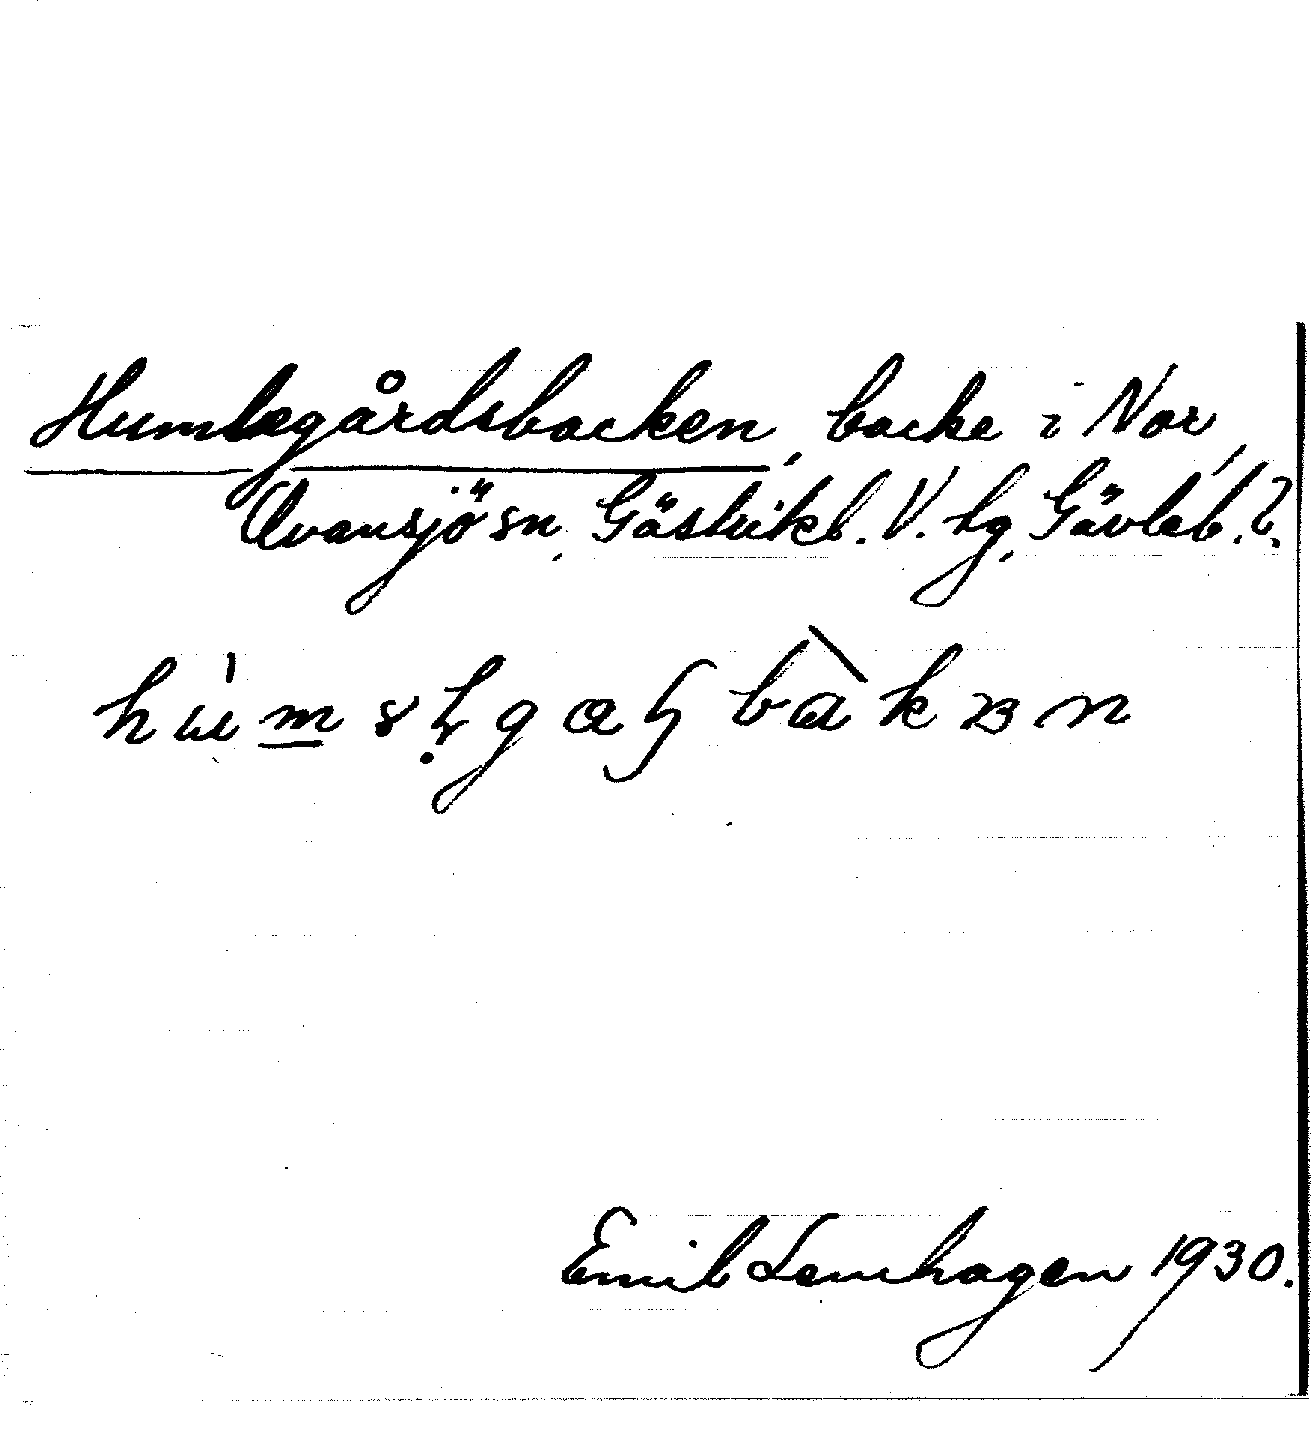 Humlegårdsbacken, backe i Nor,
Ovansjö sn, Gästrikl. V. hg, Gävleb. l.
Emil Lemhagen 1930.